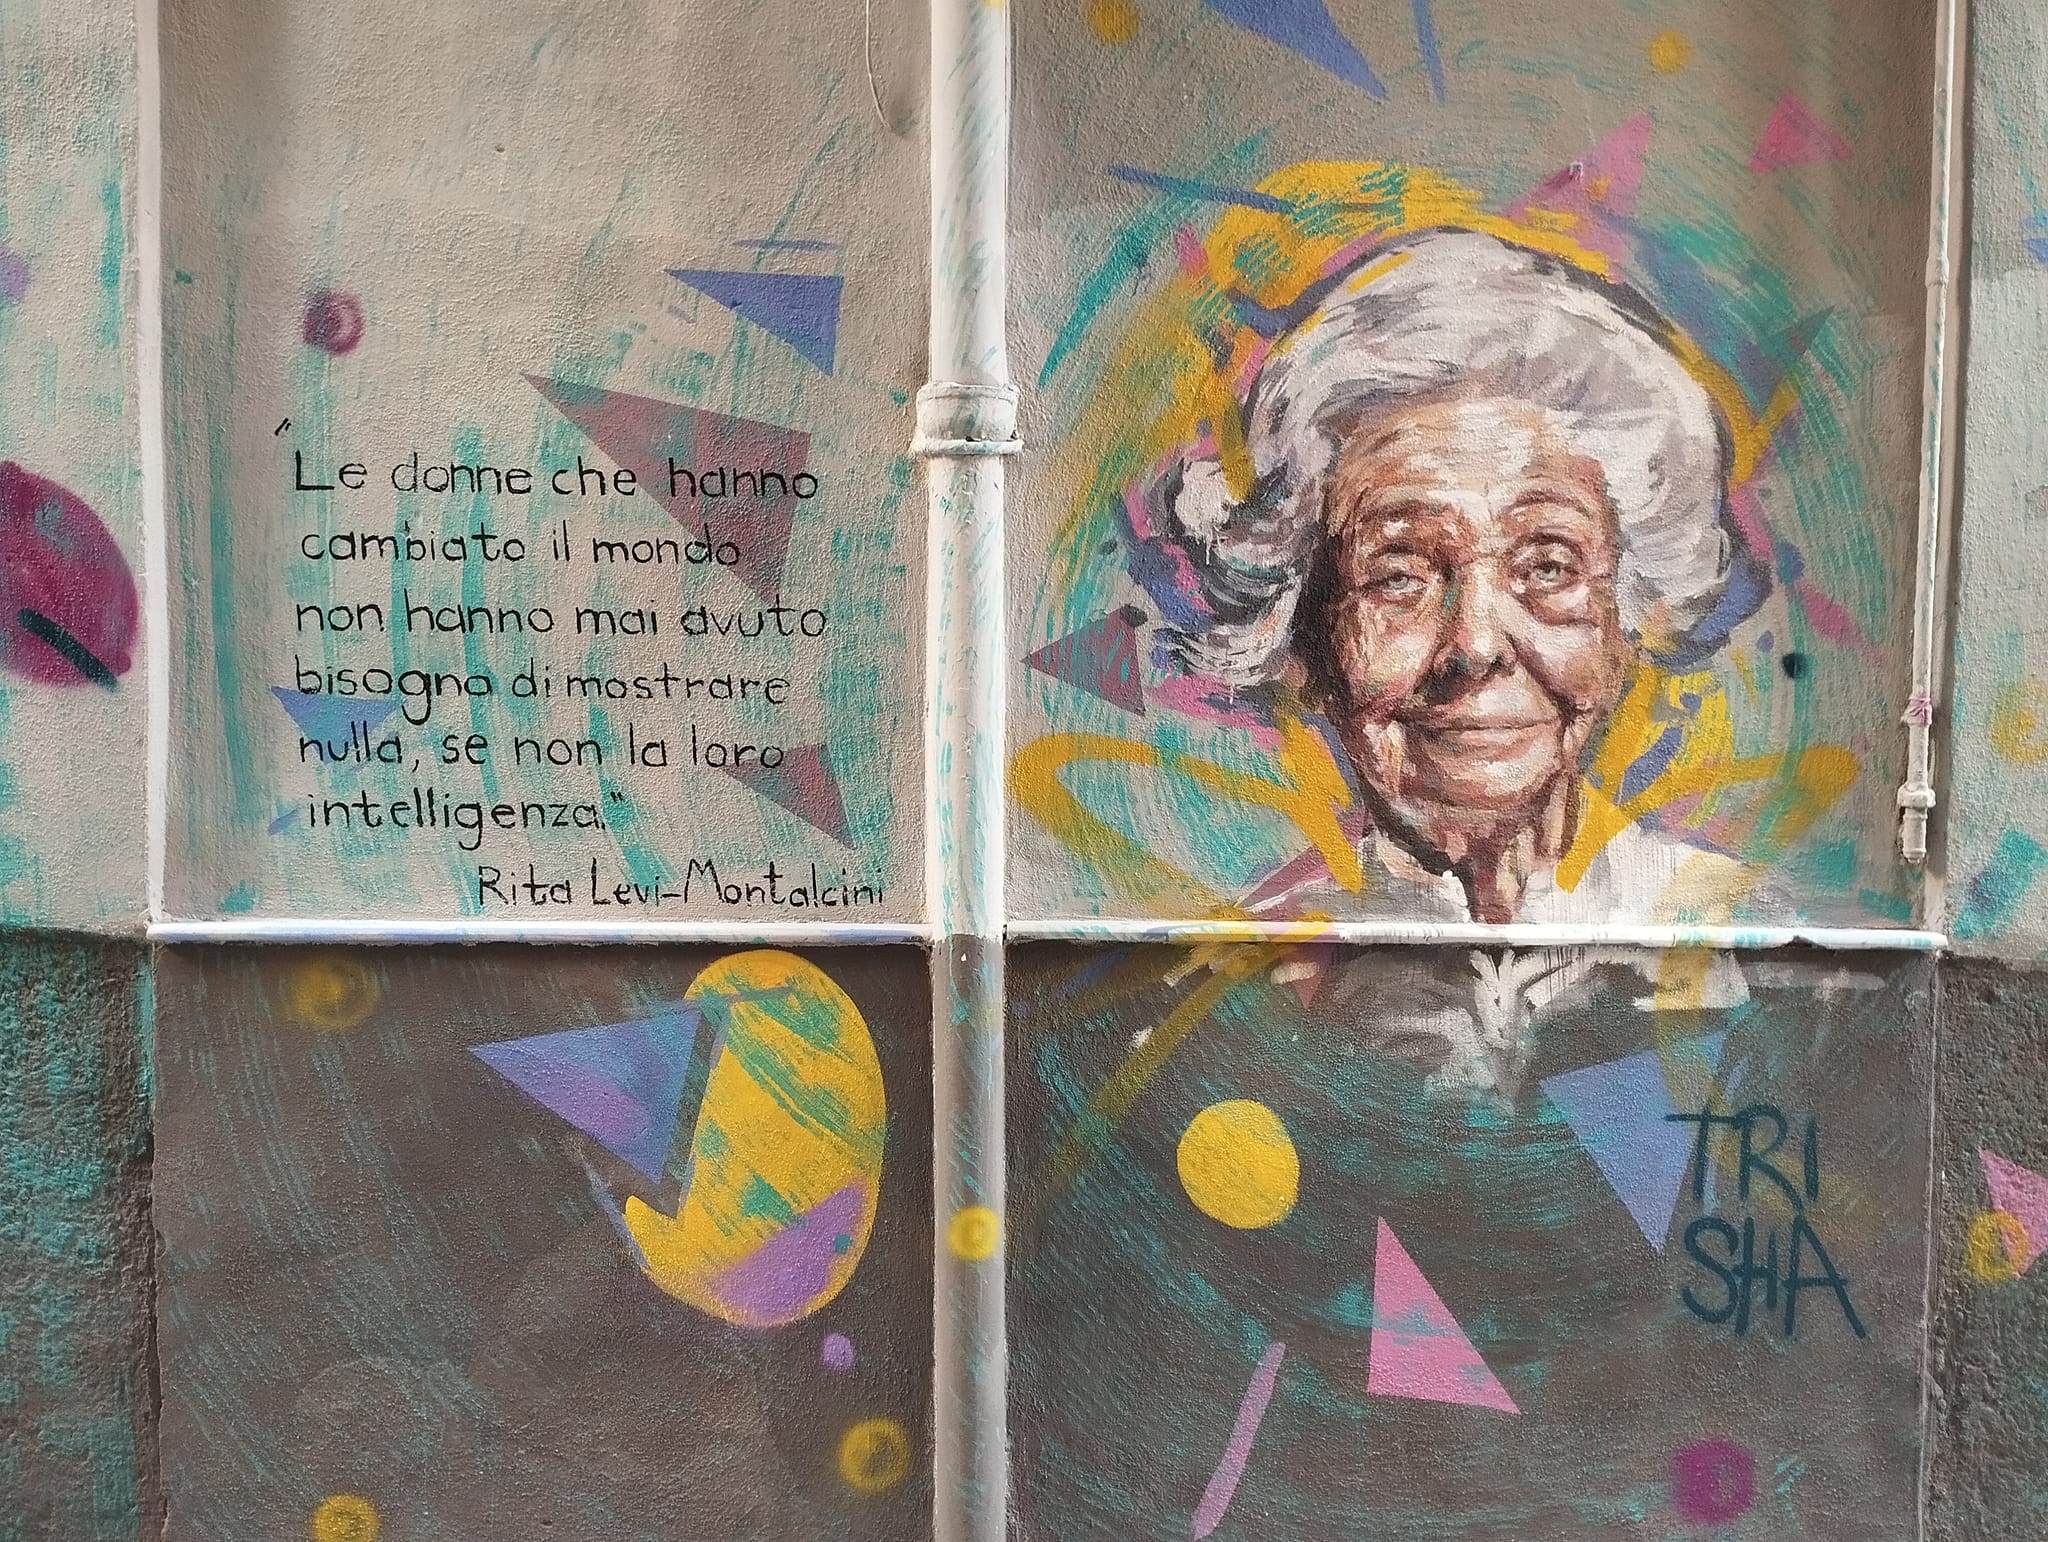 "Le donne che hanno
cambiato il mondo
non hanno mai avuto
bisogno di mostrare
nulla, se non la loro
intelligenza."
Rita Levi-Montalcini
TRI
SHA